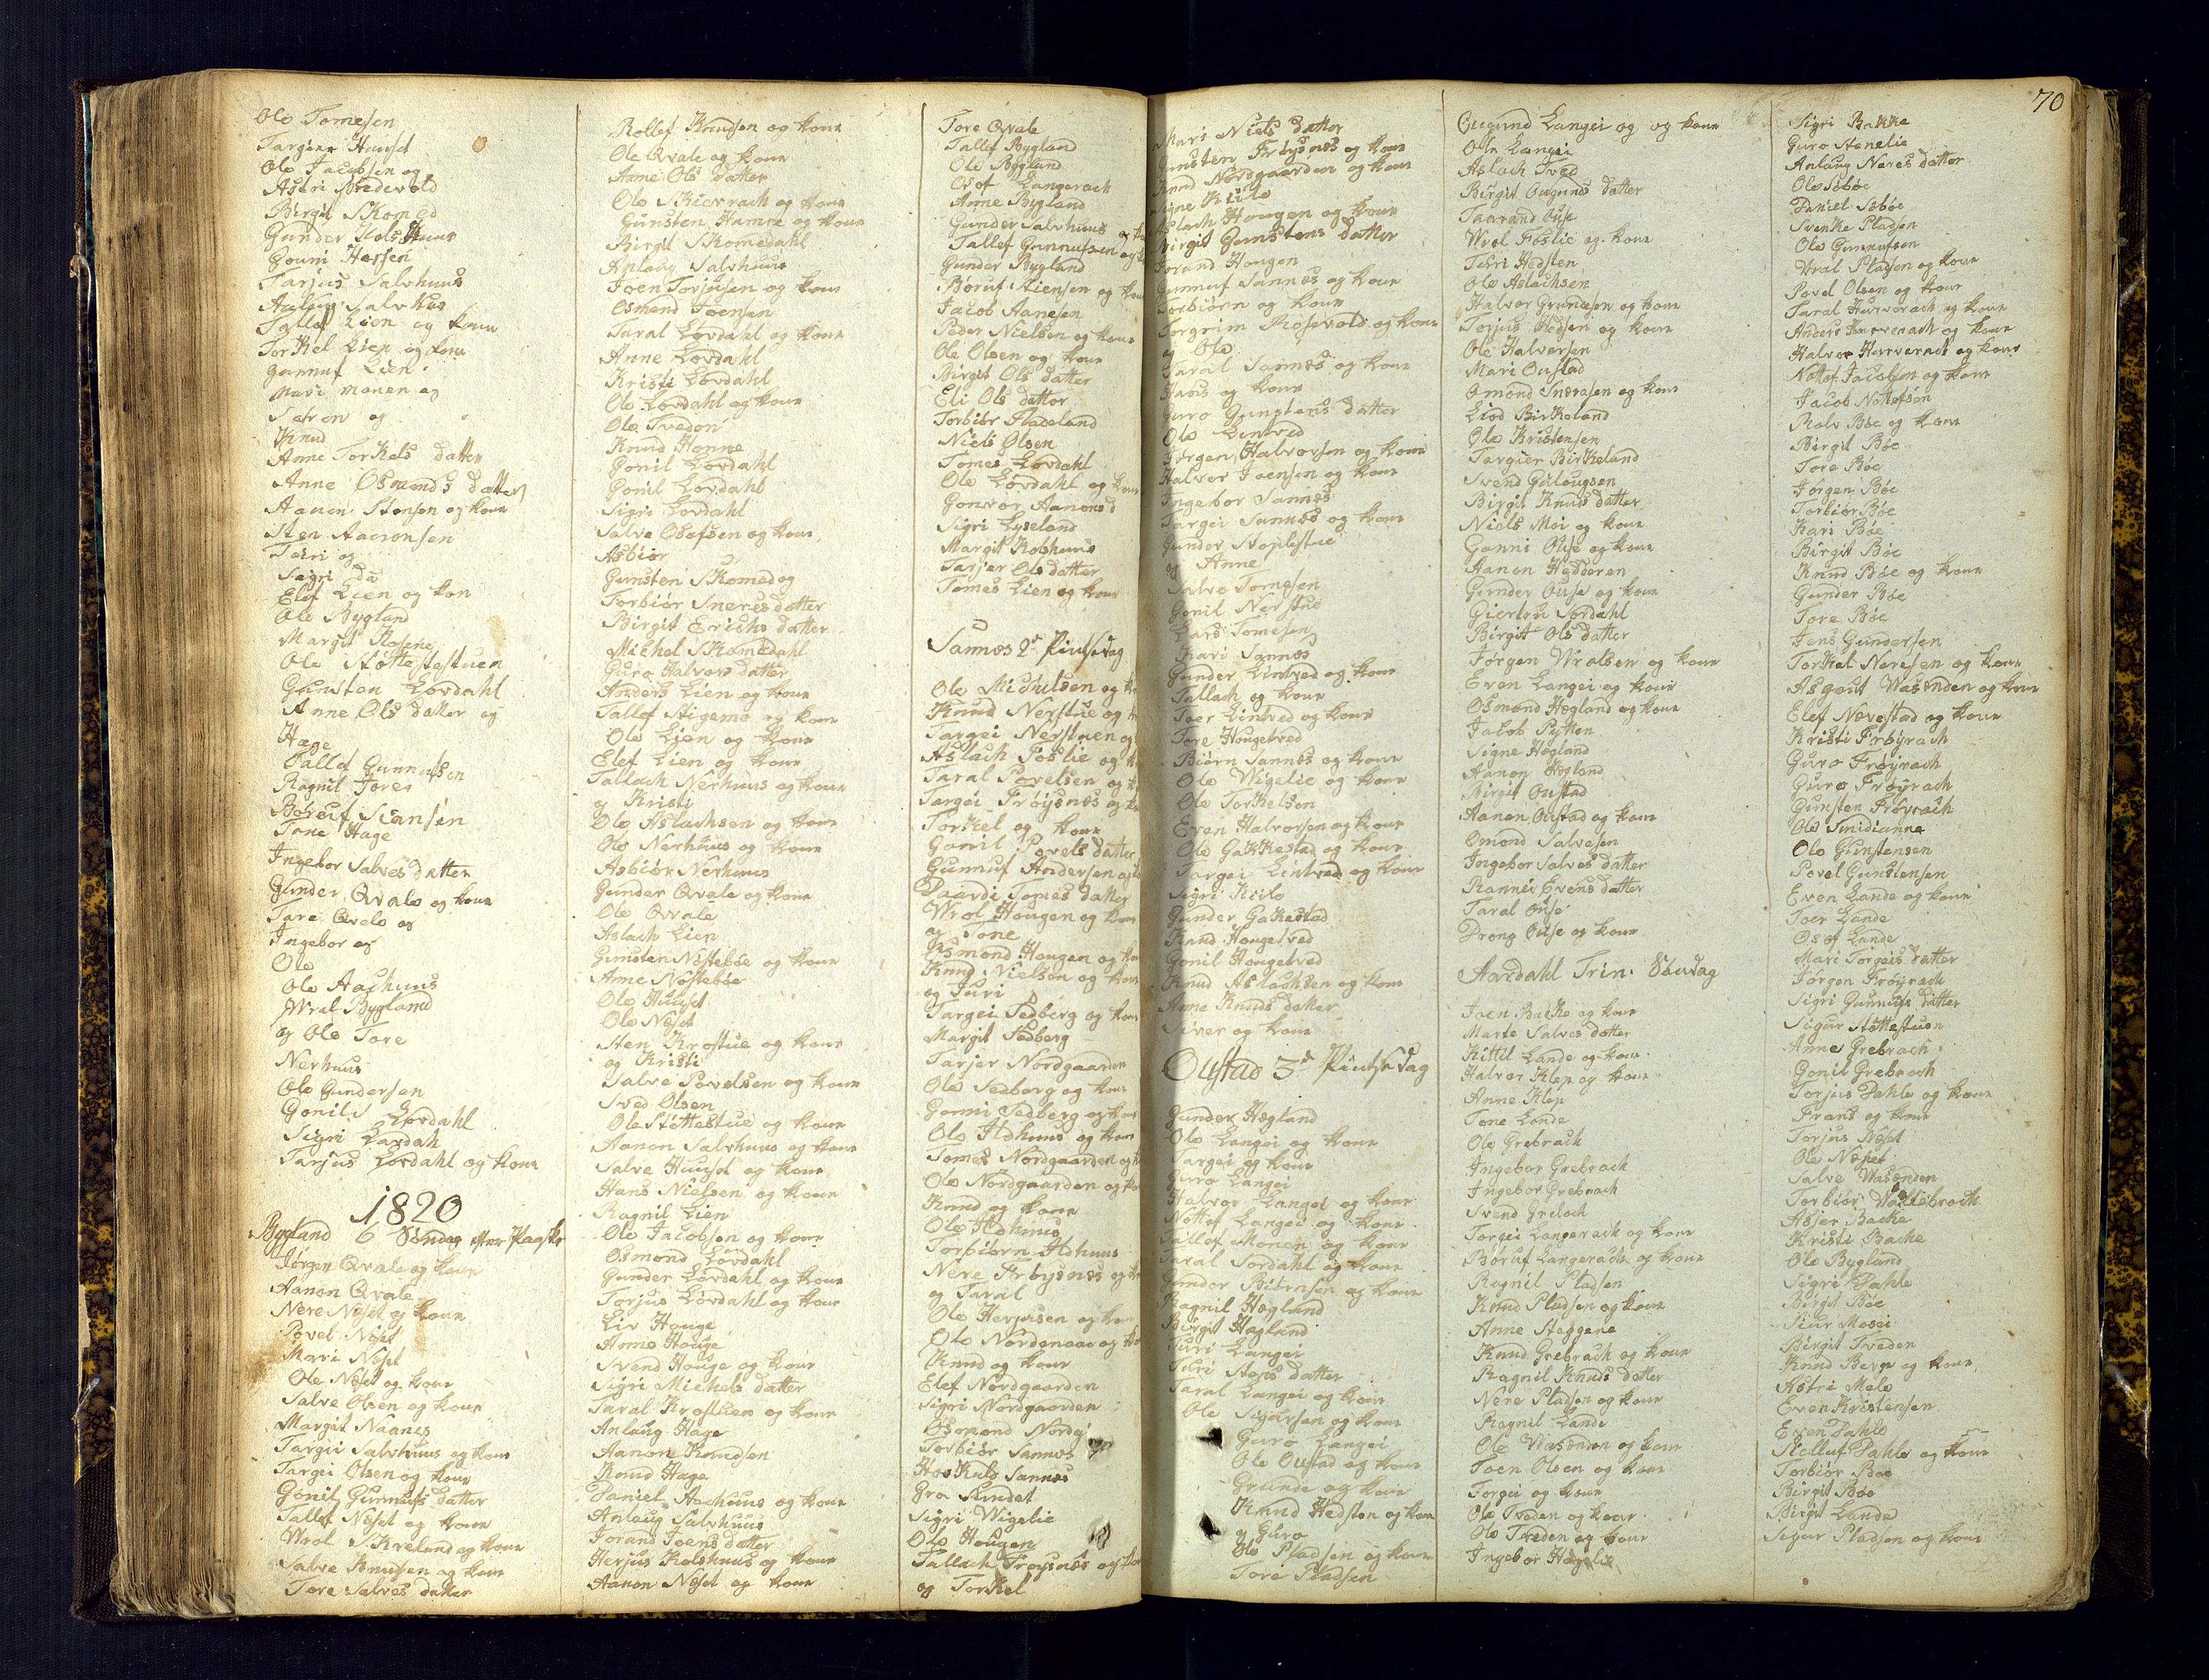 Ole Tomesen
Targier Huuset
Ole Jacobsen og
Astri Bredevold
Birgit Skomed
Gunder Kols Huus
Gouni Hersen
Tarjus Salvhuus
Anlaug Salvhus
Tallef Lien og kone
Torkel Lien og kone
Gunnuf Lien
Mari Monen og
Saron og
Knud
Anne Torkels datter
Anne Osmonds datter
Aanen Stensen og kone
Sten Aanonsen
Torri og
Sigri da
Elef Lien og kon
Ole Bygland
Margit Rosene
Ole Støttestuen
Gunsten Lordahl
Anne Ols datter og
Hage
Tallef Gunnufsen
Ragnil Tores
Børuf Stensen
Tone Hage
Ingebor Salves datter
Gunder Qvale og kone
Tare Qvale og
Ingebor og
Ole
Ole Aachuus
Wral Bygland
og Ole Tore
Nerhuus
Ole Gundersen
Gonild Lordahl
Sigri Lordah
Tarjus Lordahl og kone
1820
Bygland 6 Søndag efter Paaske
Jørgen Qvale og kone
Aanon Qvale
Nere Neset og kone
Povel Neset
Mari Neset
Ole Neset og kone
Salve Olsen og kone
Margit Naanes
Targei Salvhuus og kone
Targei Olsen og kone
Gonil Gunnufs datter
Tallef Neset og kone
Wrol Skreland og kone
Salve Knudsen og kone
Tore Salves datter
Rollef Knudsen og kone
Ole Qvale og kone
Anne Ols datter
Ole Skierrach og kone
Gunsten Hamre og kone
Birgit Skomedahl
Anlaug Salvhuus
Joen Torjusen og kone
Osmond Joensen
Taral Lordahl og kone
Anne Lordahl
Kristi Lordahl
Ole Lordahl og kone
Ole Tveden
Knud Honne
Gonil Lordahl
Gonil Lordahl
Sigri Lordahl
Salve Olofsen og kone
Asbiør
Gunsten Skomed og
Torbiør Sneres datter
Birgit Erichs datter
Michel Skomedahl
Guro Halvors datter
Anders Lien og kone
Tallef Stigemo og kone
Ole Lien og kone
Elef Lien og kone
Tallach Nerhuus og kone
og Kristi
Ole Aslachsen og kone
Ole Nerhuus og kone
Asbiør Nerhuus
Gunder Qvale og kone
Ole Qvale
Aslach Lien
Gunsten Nøstebøe og kone
Anne Nøstebøe
Ole Huuset
Ole Neset
Sten Krostue og kone
og Kristi
Salve Povelsen og kone
Sved Olsen
Ole Støttestue og kone
Aanon Salvhuus og kone
Salve Huuset og kone
Hans Nielsen og kone
Ragnil Lien
Ole Jacobsen og kone
Osmond Lordahl
Gunder Lordahl og kone
Torjus Lordahl og kone
Liv Houge
Anne Houge
Svend Houge og kone
Sigri Michels datter
Taral Krostuen og kone
Anlaug Hage
Aanon Knudsen
Knud Hage
Daniel Aachuus og kone
Anlaug Salvhuus
Jorand Joens datter
Herjus Kolshuus og kone
Aanon Neset og kone
Tore Qvale
Tallef Bygland
Ole Bygland
Olof Langerach
Anne Bygland
Gunder Salvhuus og
Tallef Gunnufsen og
Gunder Bygland
Børuf Stensen og kone
Jacob Aanesen
Peder Nielsen og kone
Ole Olsen og kone
Birgit Ols datter
Eli Ols datter
Torbiør Fladeland
Niels Olsen
Tomes Lordahl
Ole Lordahl og kone
Gonvor Aanons d
Sigri Lyseland
Margit Kolshuus
Tarjer Ols datter
Tomes Lien og kone
Sannes 2en Pintsedag
Ole Michelsen og
Knud Nerstue og
Targei Nerstuen og
Aslach Foslie og
Taral Povelsen og
Targei Frøysnes og
Torkel og kone
Gonil Povels datter
Gunnuf Andersen og
Tomes datter
Wrol Hougen og kone
og Tone
Osmond Hougen og
Knud Nielsen og kone
og Juri
Targei Sedberg og kone
Margit Sedberg
Tarjer Nordgaarden
Ole Sedberg og kone
Gonni Sedberg og kone
Ole Ildhuus og kone
Tomes Nordgaarden og
Ole Nordgaarden og
Knud og kone
Ole Ildhuus
Torbiørn Ildhuus
Nere Frøysnes og
og Taral
Ole Herjusen og kone
Ole Nordgaar og
Knud og kone
Elef Nordgaarden
Sigri Nordgaarden
Osmond Nordg
Torbiør Sannes
Hoskuld Sannes
Gro Sundet
Sigri Wigelie
Ole Hougen
Tallach Frøysnes og
og Torkel
Mari Niels datter
Gunsten Frøysnes og kone
Knud Nordgaarden og kone
Signe Kiilo
Aslach Hougen og kone
Birgit Gunstens datter
Jorand Hougen
Gunnuf Sannes og kone
Torbiørn og kone
Torgrim Rosevold og kone
og Ole
Taral Sannes og kone
Hans og kone
Guro Gunstens datter
Ole Lintved
Jørgen Halvorsen og kone
Halvor Joensen og kone
Ingebor Sannes
Targei Sannes og kone
Gunder Stoplestue
og Anne
Salve Tomesen
Gonil Nerstue
Lars Tomesen
Kari Sannes
Gunder Lintved og kone
Tallach og kone
Toer Lintved og kone
Tore Hougetved
Biørn Sannes og kone
Ole Wigelie og kone
Ole Torkelsen
Even Halvorsen og kone
Ole Gakkestad og kone
Targei Lintved og kone
Sigri Kiilo
Gunder Gakestad
Knud Hougetved
Gonil Hougetved
Knud Aslachsen og kone
Anne Knuds datter
Siver og kone
Oustad 3de Pintsedag
Gunder Hegland
Ole Langei og kone
Targei og kone
Guro Langei
Halvor Langei og kone
Nottef Langei og kone
Tallef Monen og kone
Taral Sordahl og kone
Gunder Biørnsen og kone
Ragnil Hegland
Birgit Hagland
Juri Langei
Torri Stens datter
Taral Langei og kone
Ole Sigursen og kone
Guro Langei
Ole Oustad og kone
Grunde og kone
Knud Hedsten og kone
og Guro
Ole Pladsen og kone
Tore Pladsen
Ougund Langei og og kone
Ole Langei
Aslach Tved
Birgit Ougunds datter
Taarand Ouse
Wrol Foslie og kone
Torri Hedsten
Ole Aslachsen
Halvor Grundesen og kone
Torjus Hedsen og kone
Ole Halversen
Mari Oustad
Omond Sneresen og kone
Liod Birkeland
Ole Kristensen
Targier Birkeland
Svend Gulougsen
Birgit Knuds datter
Niels Moi og kone
Gonni Ouse og kone
Aanon Hedderen
Gunder Ouse og kone
Giertru Sordahl
Birgit Ols datter
Jørgen Wralsen og kone
Even Langei og kone
Osmond Hegland og kone
Jacob Pytten
Signe Hegland
Aanon Hegland
Birgit Oustad
Aanon Oustad og kone
Omond Salvesen
Ingebor Salves datter
Rannei Evens datter
Taral Ouse
Dreng Ouse og kone
Aardahl Trin. Søndag
Joen Backe og kone
Marte Salves datter
Kittil Lande og kone
Halvor Klep og kone
Anne Klep
Tone Lande
Ole Grebrach
Ingebor Grebrach
Ingebor Grebrach
Svend Greibch
Torgei Langerach og kone
Børuf Langerach og kone
Ragnil Pladsen
Knud Pladsen og kone
Anne Steggene
Knud Grebrach og kone
Ragnil Knuds datter
Nere Pladsen og kone
Ragnil Lande
Ole Wasenden og kone
Joen Olsen og kone
Torgei og kone
Ole Tveden og kone
Ole Tveden og kone
Ingebor
70
Sigri Bakke
Guro Stenelie
Anlaug Neres datter
Ole Sebøe
Daniel Sebøe
Svenke Pladsen
Ole Gunnufsen
Wral Pladsen og kone
Povel Olsen og kone
Taral Hurverach og kone
Anders Hurverach og kone
Halvor Hurverach og kone
Nottef Jacobsen og kone
Jacob Nottefsen
Rolv Bøe og kone
Birgit Bøe
Tore Bøe
Jørgen Bøe
Torbiør Bøe
Kari Bøe
Birgit Bøe
Knud Bøe og kone
Gunder Bøe
Tore Bøe
Jens Gundersen
Torkel Neresen og kone
Asgout Wasenden og kone
Elef Nevestad og kone
Kristi Frøyrach
Guro Frøyrach
Guro Frøyrach
Gunsten Frøyrach
Ole Smidianne
Ole Gunstensen
Povel Gunstensen
Even Lande og kone
Toer Lande
Osof Lande
Mari Torgeis datter
Jørgen Frøyrach
Sigri Gunnufs datter
Sigur Støttestuen
Anne Grebrach
Gonil Grebrach
Torjus Dahle og kone
Frans og kone
Torjus Neset
Ole Neset
Salve Wasenden
Torbiør
Asjer Backe
Kristi Backe
Ole Bygland
Sigri Dahle
Birgit Bøe
Siur Mosei
Birgit Tveden
Knud Berge og kone
Astri Melo
Even Kristensen
Even Dahle
Kelluf Dahle og kone
Torbiør Bøe
Birgit Bøe
Birgit Lande
Sigur Pladsen og kone